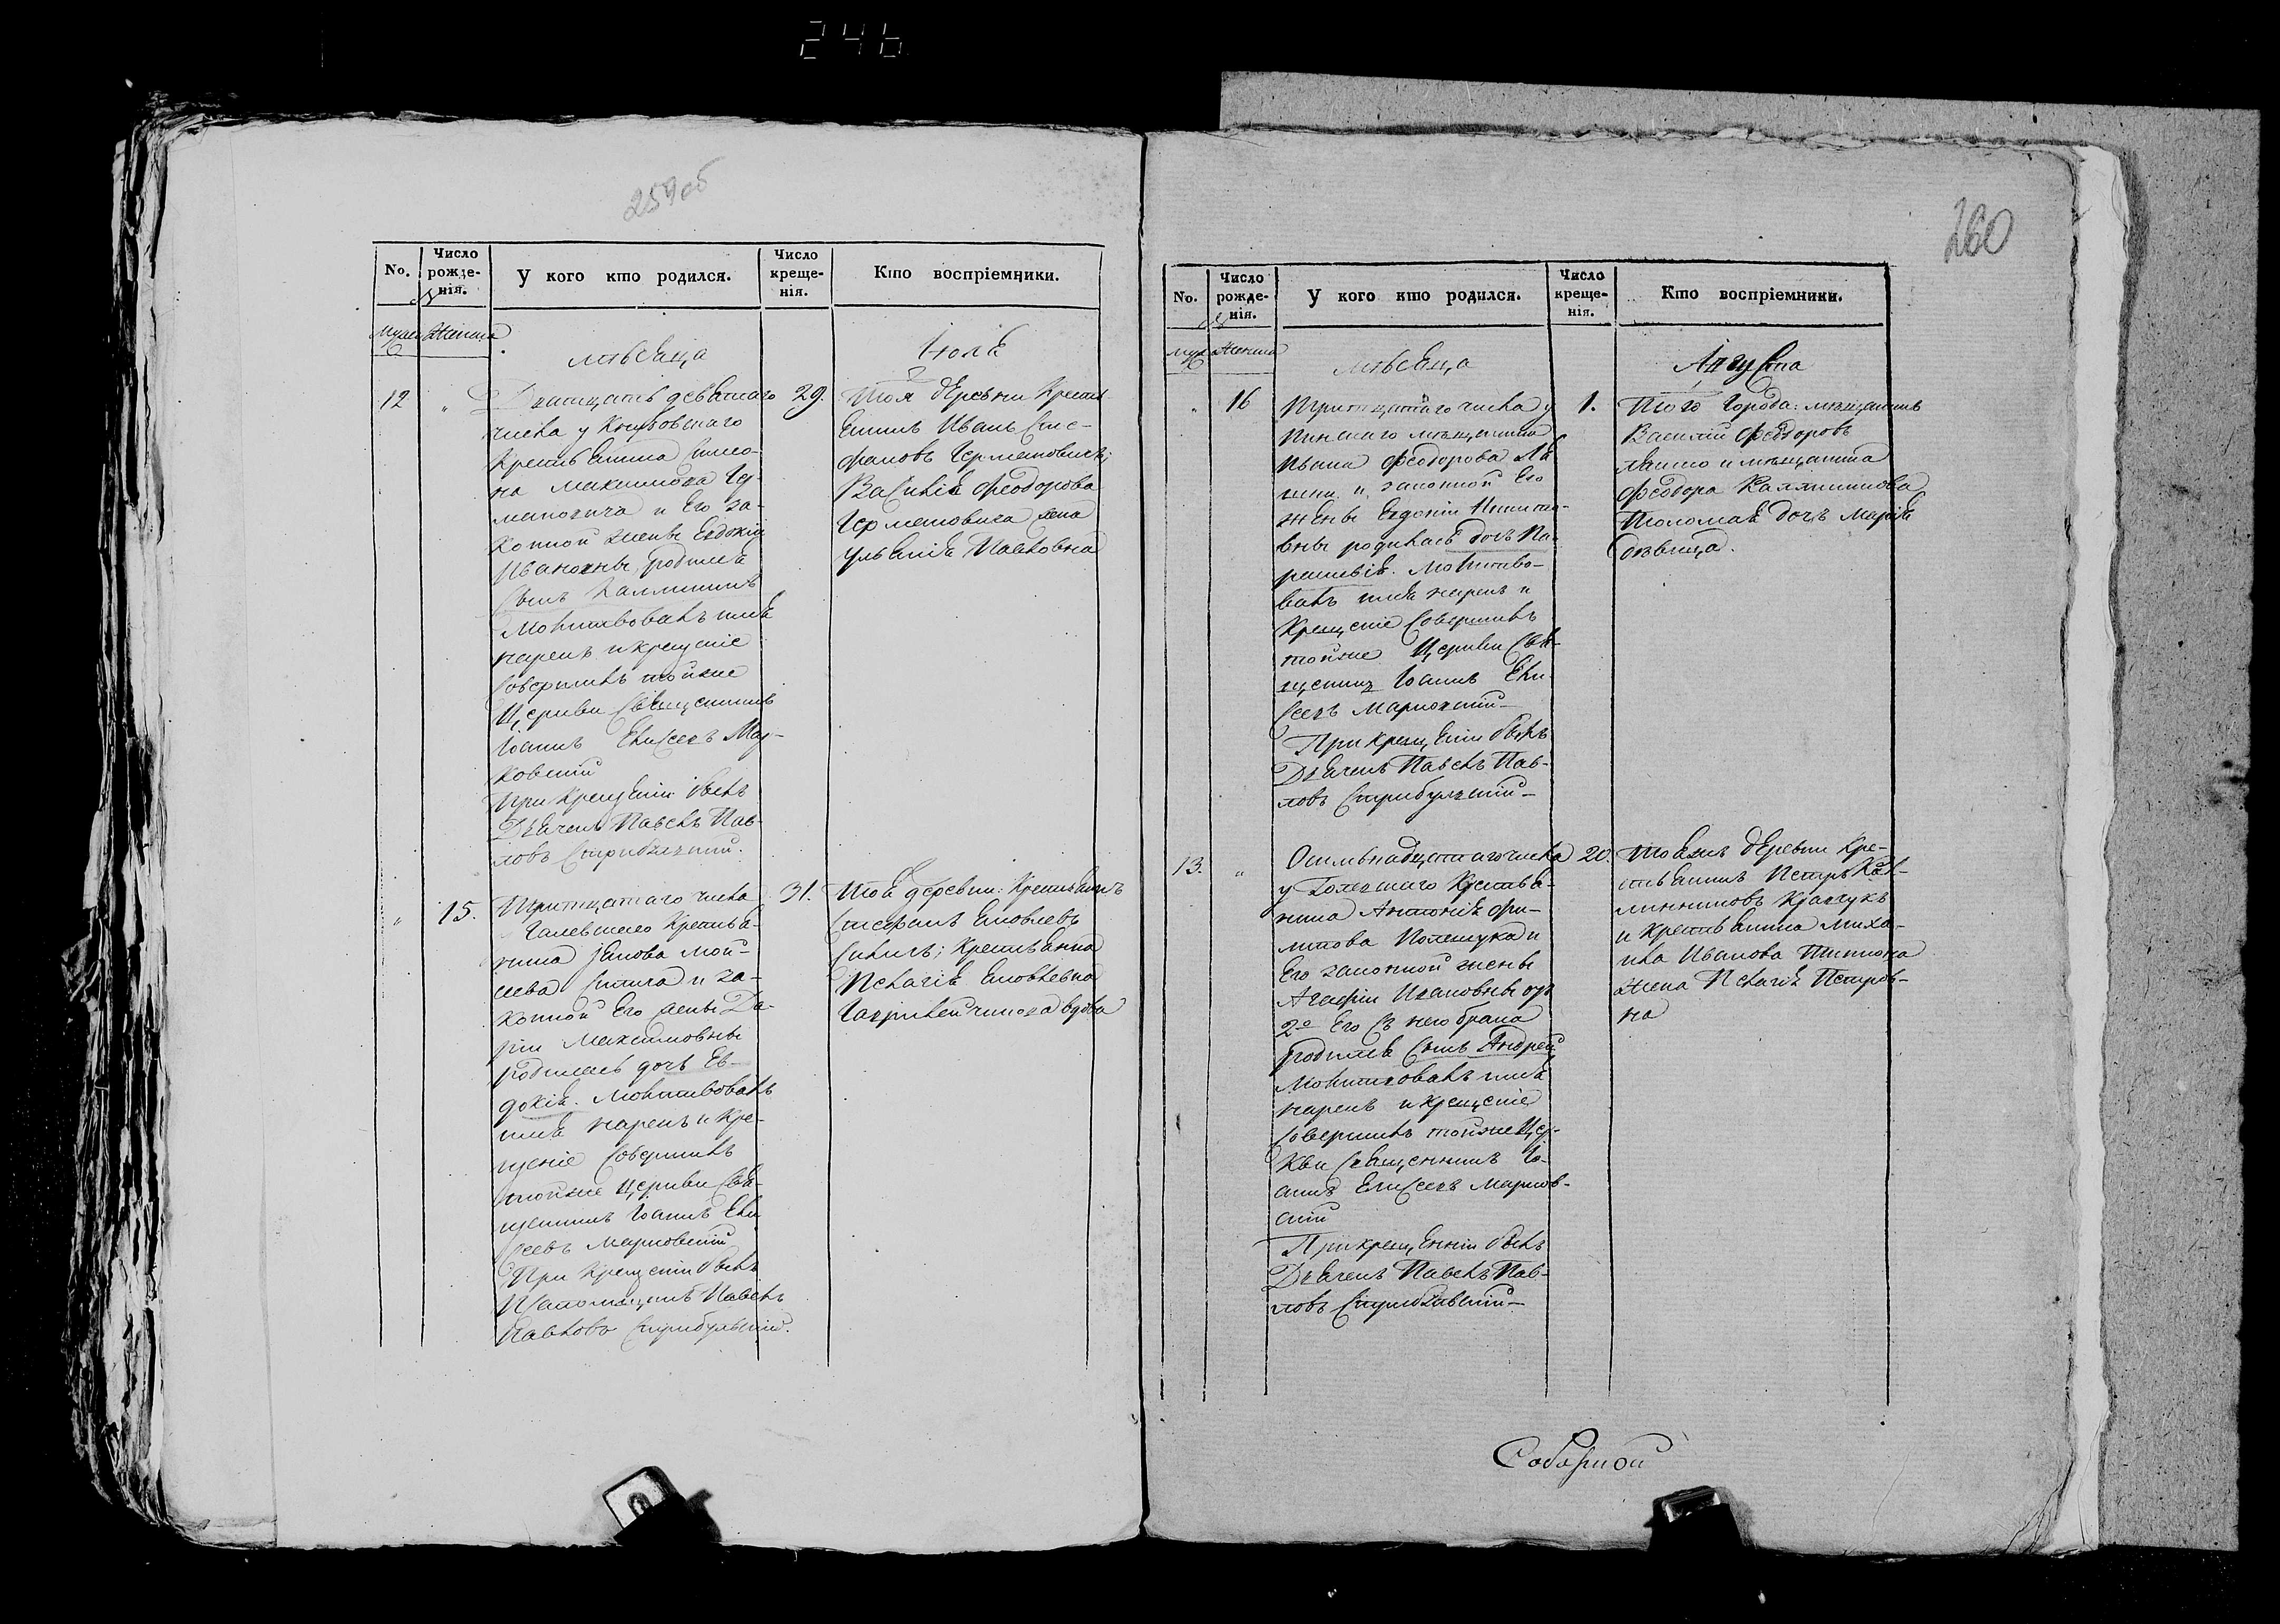 246
259об
No.
Число рожденія.
У кого кто родился.
Число крещенія.
Кто воспріемники.
Муж Женска
мѣсяца
Іюля
12
"
Дватцать деватаго
числа у
Крестьянина Симео-
на Максимова Гер-
мановича и Его за-
конной жены Евдокіи
Ивановны родился
Сынъ Каллиникъ
Молитвовалъ имя
нарекъ и крещеніе
Совершилъ тойже
Церкви Священникъ
Іоаннъ Елисеевъ Мар-
ковскій
При Крещеніи былъ
Дьячекъ Павелъ Пав-
ловъ
29.
Тоя дЕревни Крестья-
нинъ Иванъ Сте-
фановъ Германовичъ;
Василія Феодорова
Германовича жена
Ульянія Павловна
"
15.
Тритцатаго числа
Крестья-
нина Іакова Мой-
сеева и за-
конной Его жены Да-
ріи Максимовны
родилась дочь Ев-
докія. Молитвовалъ
имя нарекъ и кре-
щеніе Совершилъ
тойже Церкви Свя-
щенникъ Іоаннъ Ели
сеевъ Марковскій
При Крещеніи былъ
Павелъ
Павловъ
31.
Тоя деревни: Крестьянинъ
Стефанъ Яковлевъ
Крестьянка
Пелагія Яковлевна
вдова
260
No.
Число рожденія.
У кого кто родился.
Число крещенія.
Кто воспріемники.
Муж Женска
мѣсяца
Августа
"
16
Тритцатаго числа у
Пинскаго мѣщанина
Ивана Феодорова
и законной Его
жены Евдокіи Никити-
вны родилась дочь Па-
раскевія. Молитво-
валъ имя нарекъ и
Крещеніе Совершилъ
тойже Церкви Свя-
щенник Іоаннъ Ели
сеевъ Марковскій
При крещеніи былъ
Дьячекъ Павелъ Пав-
ловъ
1.
Того Города: мѣщанинъ
Василій Феодоровъ
и мѣщанина
Феодора Каллиникова
дочъ Марія
дѣвица.
13.
"
Осьмьнадцатаго числа
у Крестья-
нина Антонія Фи-
липова Полещука и
Его законной жены
Агафіи Ивановны отъ
2о Его Съ нею брака
родился Сынъ Андрей
Молитвовалъ имя
нарекъ и крещеніе
Совершилъ тойже Цер-
кви Священникъ Іо-
аннъ Елисеевъ Марков-
скій
При крещенніи былъ
Дьячекъ Павелъ Пав-
ловъ
20.
дЕревни Кре-
стьянинъ Петръ Кал-
линиковъ Кравчукъ
и Крестьянина Миха-
ила Иванова
жена Пелагія Петров-
на
Соборной